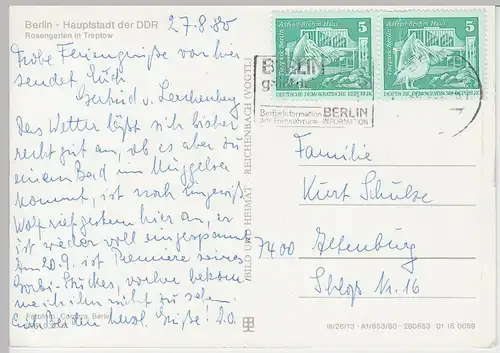 Berlin - Hauptstadt der DDR
Rosengarten in Treptow
27.8.80
Frohe Feriengrüße von hier
sendet Euch
Gertrud v. Lerchenberg
Das Wetter läßt sich bisher
recht gut an, ob es aber zu
einem Bad im Müggelsee
kommt, ist noch ungewiß
Wolf rief gestern hier an, er
ist wieder voll eingespannt
Am 20.9. ist Premiere seines
Gorki-Stückes, vorher bekom
me ich ihn nicht zu sehen.
Euch beiden herzl. Grüße! D.O.
BILD UND HEIMAT REICHENBACH (VOGTL)
5
Alfred-Brehm-Haus
Tierpark Berlin
DEUTSCHE DEMOKRATISCHE REPUBLIK
5
Alfred-Brehm-Haus
Tierpark Berlin
DEUTSCHE DEMOKRATISCHE REPUBLIK
BERLIN
Berlin-Information
am Fernsehturm
BERLIN
INFORMATION
Familie
Kurt Schulze
7400 Altenburg
Nr. 16
Berlin
III/26/13 · A1/653/80 - 280653 01 15 0059